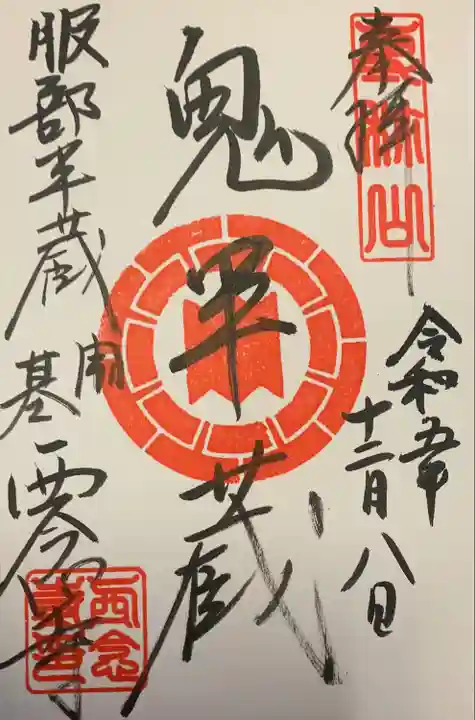 奉拝
令和五年
十二月八日
鬼半蔵
服部半蔵
開基
西念寺